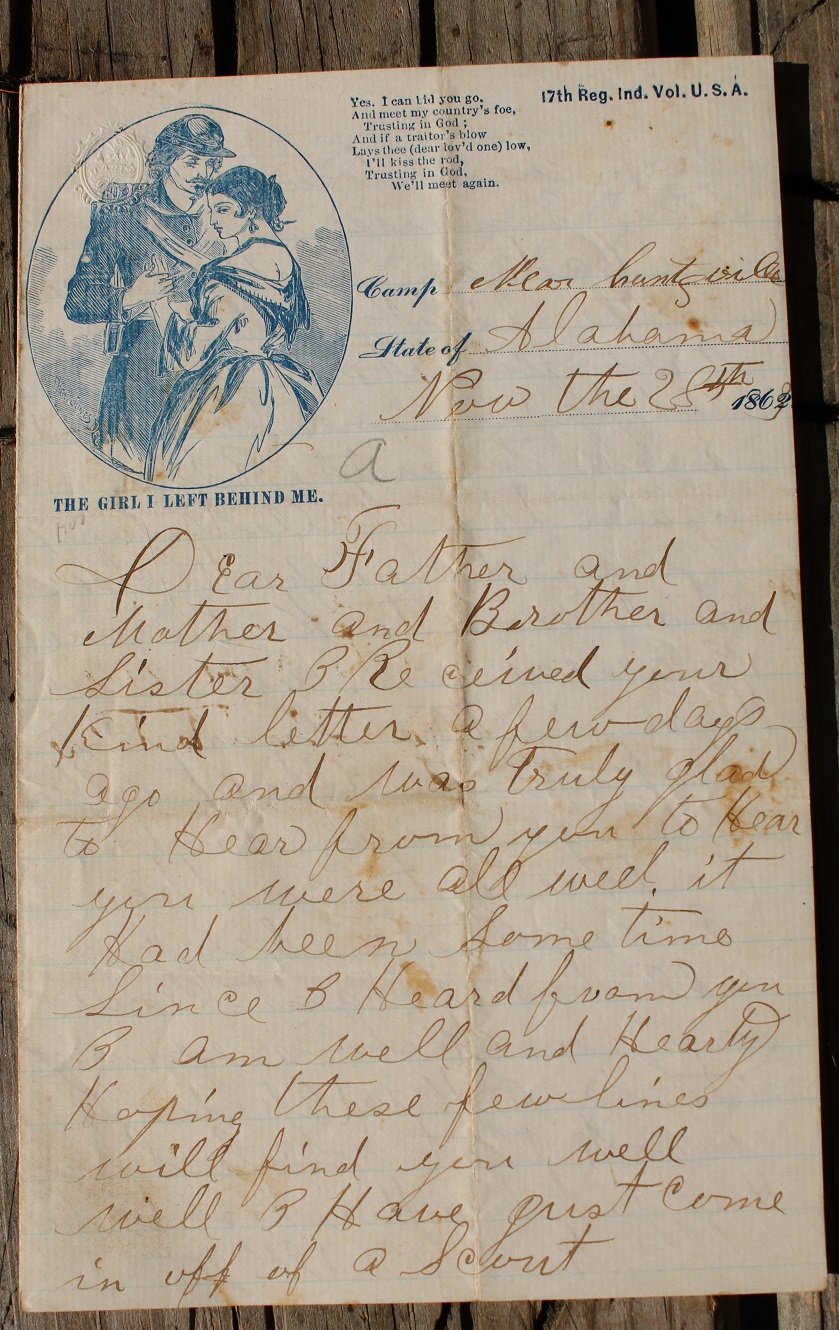 17th Reg. Ind. Vol. U. S. A.
Yes, I can bid you go,
And meet my country's foe,
Trusting in God ;
And if a traitor's blow
Lays thee (dear lov'd one) low,
I'll kiss the rod,
Trusting in God,
We'll meet again.
Camp Near huntsville
State of Alabama
Nov the 28th 186
a
THE GIRL I LEFT BEHIND ME.
Dear Father and
Mother and Brother and
Sister I Received your
Kind letter a few days
ago and was truly glad
to Hear from you to Hear
you were all well. it
Had been some time
Since I Heard from you
I am well and Hearty
Hoping these few lines
will find you well
well I Have just come
in off of a Scout